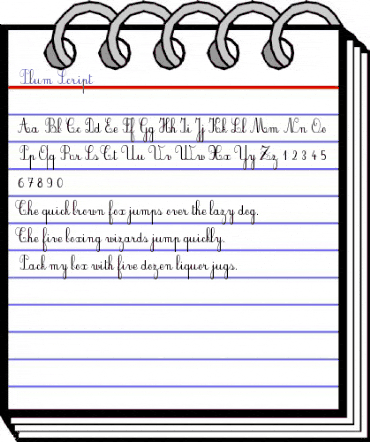 Plum Script
Aa Bb Cc Dd Ee Ff Gg Hh Ii Jj Kk Ll Mm Nn Oo
Pp Qq Rr Ss Tt Uu Vv Ww Xx Yy Zz 1 2 3 4 5
6 7 8 9 0
The quick brown fox jumps over the lazy dog.
The five boxing wizards jump quickly.
Pack my box with five dozen liquor jugs.